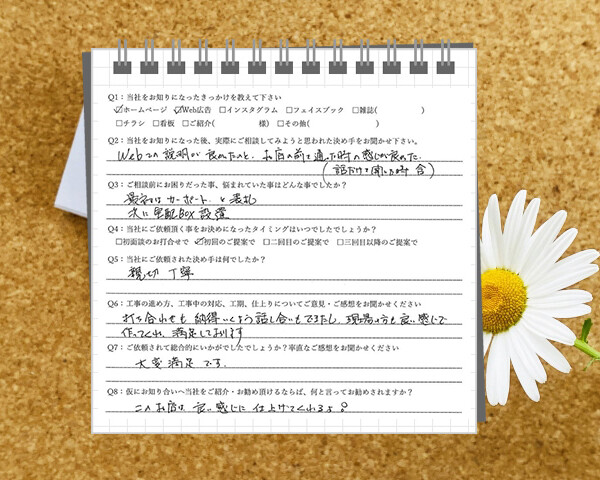 Q1：当社をお知りになったきっかけを教えて下さい
☑ホームページ ☑Web広告 □インスタグラム □フェイスブック □雑誌( )
□チラシ □看板 □ご紹介( 様) □その他( )
Q2：当社をお知りになった後、実際にご相談してみようと思われた決め手をお聞かせ下さい。
Webでの説明が良かったのと、お店の前を通った時の感じが良かった。
(話だけを聞いた時 合)
Q3：ご相談前にお困りだった事、悩まれていた事はどんな事でしたか？
最初は カーポート と 表札
次に 宅配BOX 設置
Q4：当社にご依頼頂く事をお決めになったタイミングはいつでしたでしょうか？
□初面談のお打合せで ☑初回のご提案で □二回目のご提案で □三回目以降のご提案で
Q5：当社にご依頼された決め手は何でしたか？
親切 丁寧
Q6：工事の進め方、工事中の対応、工期、仕上りについてご意見・ご感想をお聞かせください
打ち合わせも 納得いくよう 話し合いもできたし、現場の方も 良い感じで
作ってくれ、満足しております
Q7：ご依頼されて総合的にいかがでしたでしょうか？率直なご感想をお聞かせください
大変満足です.
Q8：仮にお知り合いへ当社をご紹介・お勧め頂けるならば、何と言ってお勧めされますか？
このお店は 良い感じに 仕上げてくれるよ？